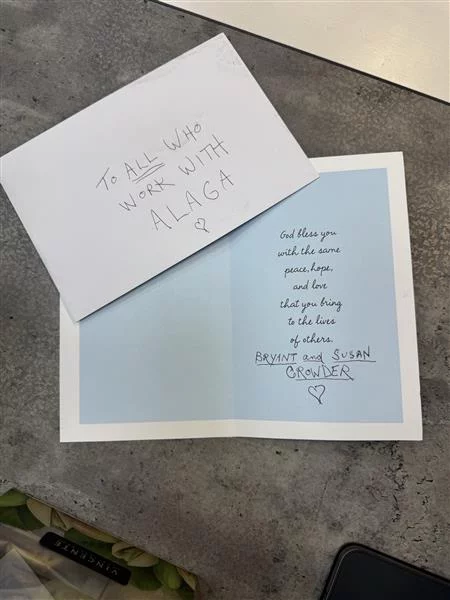 To ALL WHO
WORK WITH
ALAGA
God bless you
with the same
peace, hope,
and love
that you bring
to the lives
of others.
BRYANT and SUSAN
CROWDER
VINCENTE